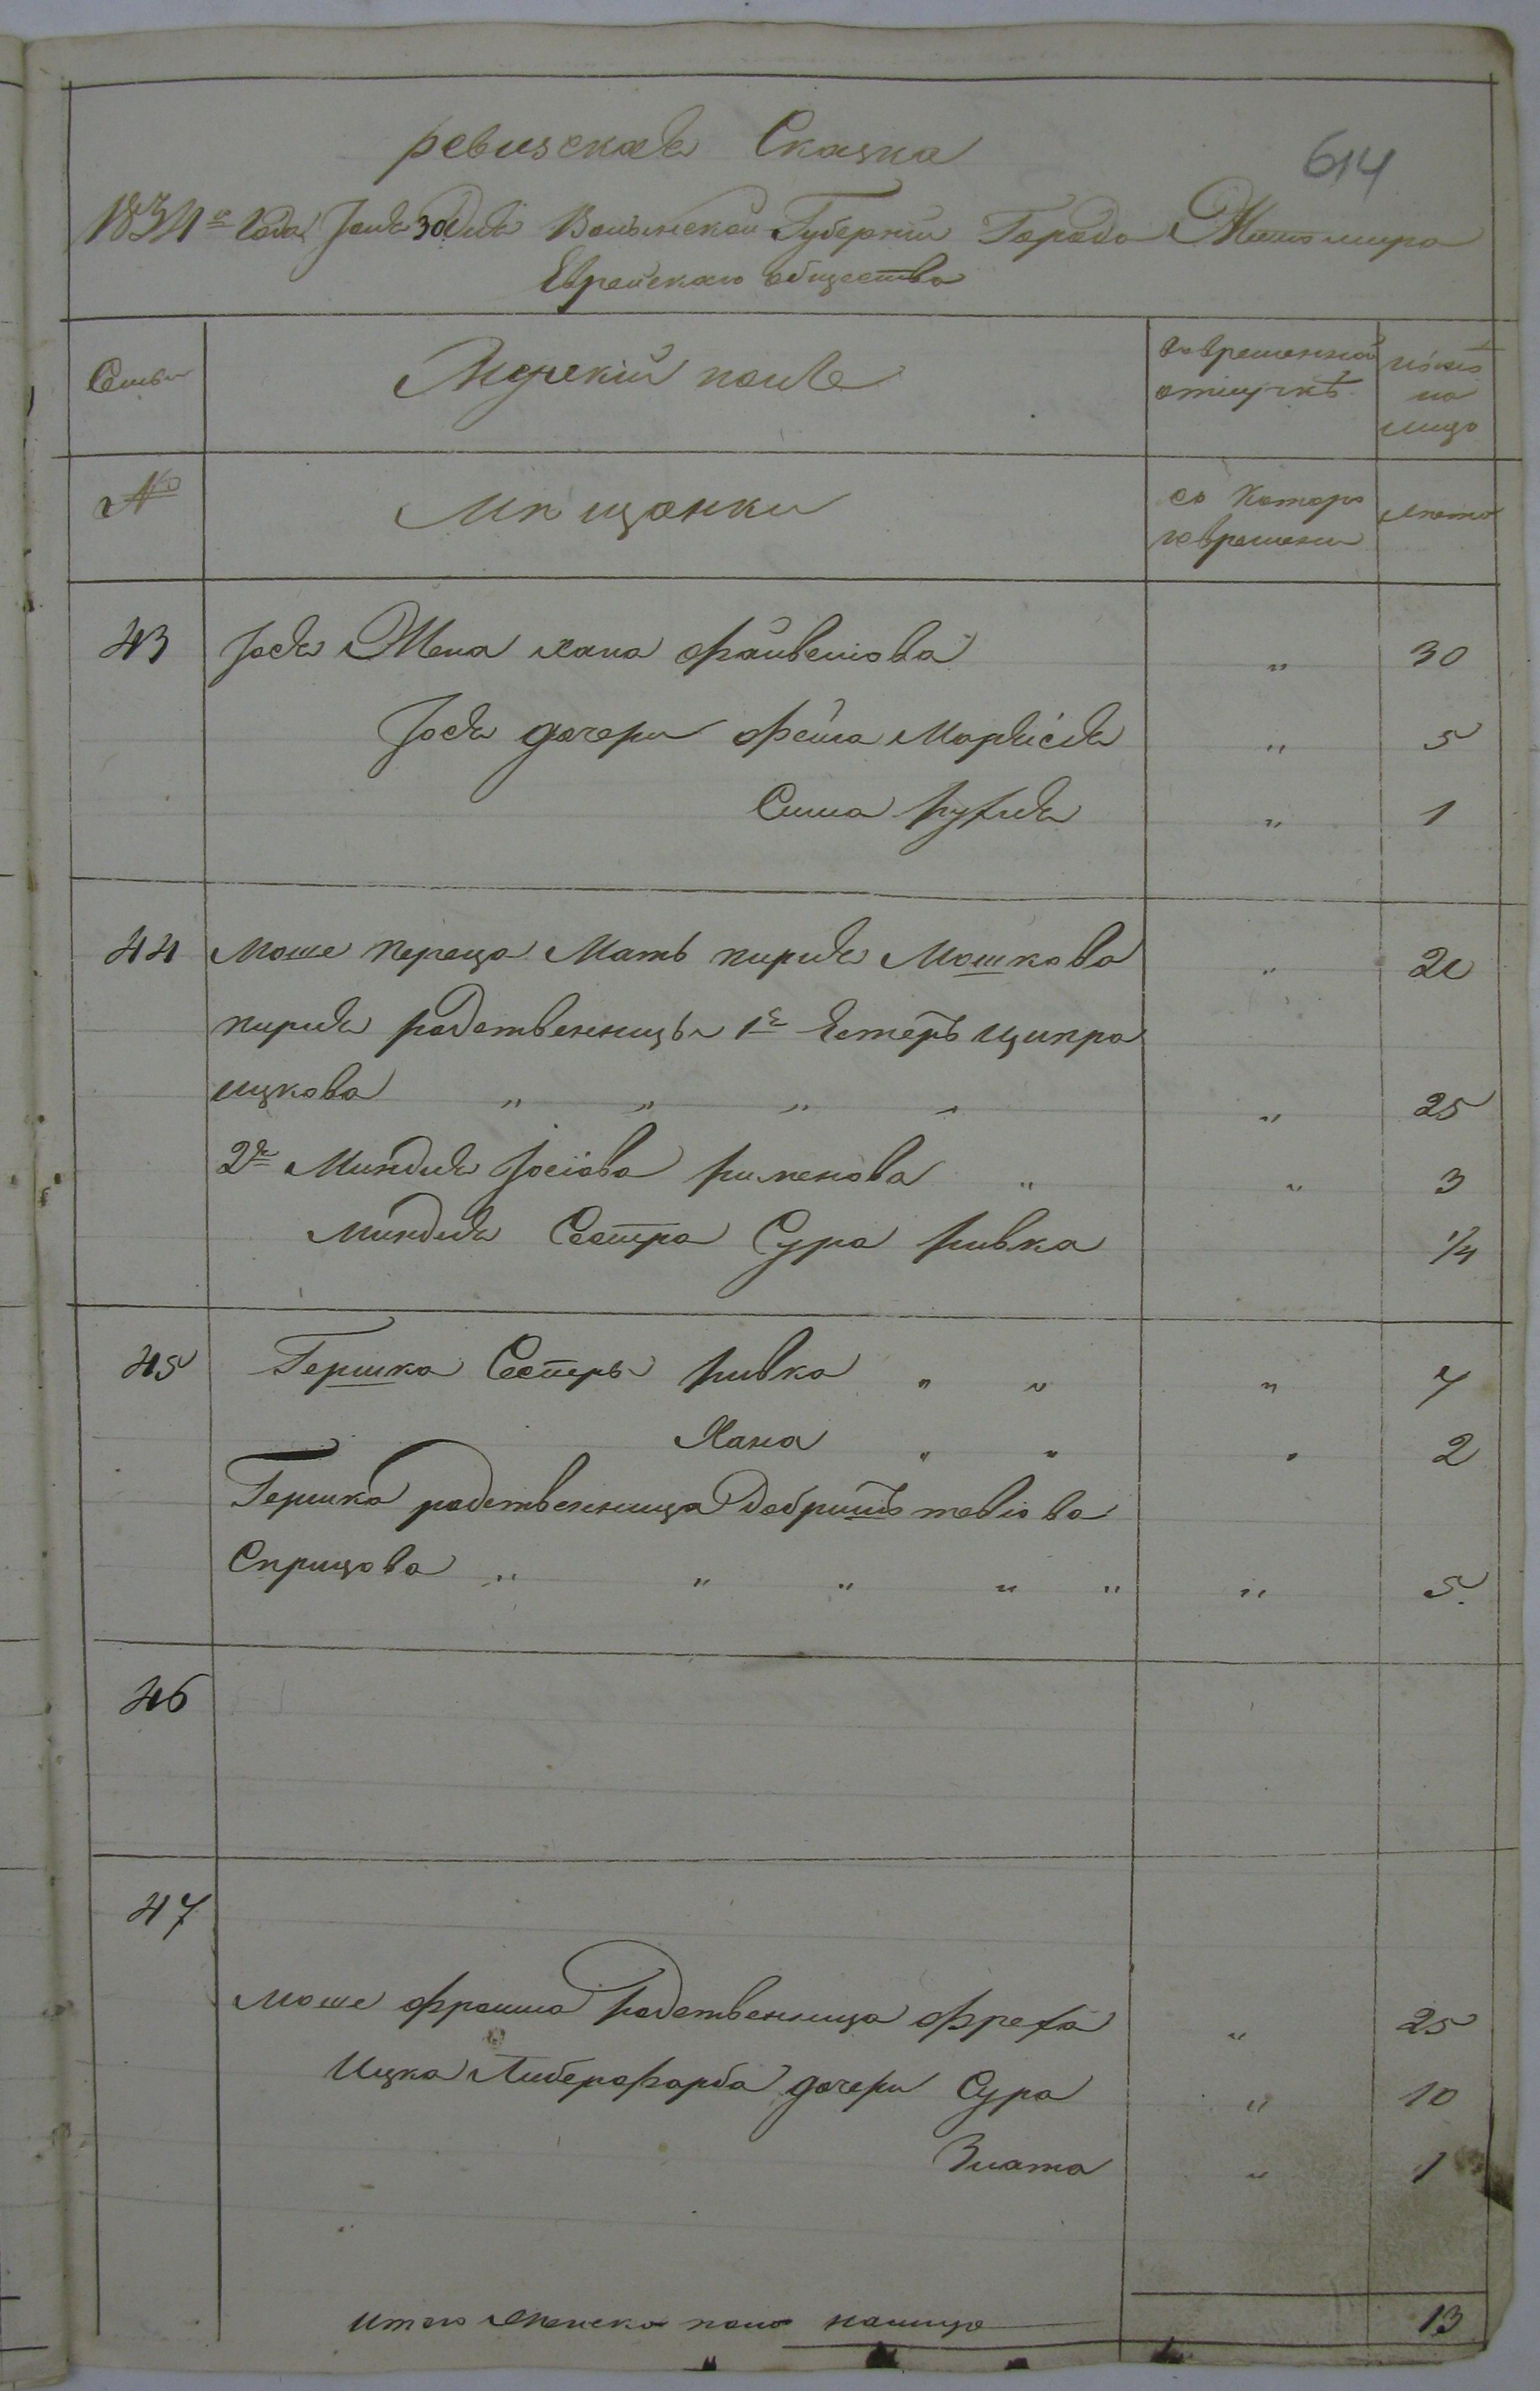 ревизская Сказка
614
1834го Года Июня 30 Дня Волынской Губернии Города Житомира
Еврейскаго общества
Семьи
Женскій полъ
во временной отлучкѣ
ныне на лицо
№
Мѣщанки
съ котораго времени
лета
43 Иося Жена хана файвелова " 30
Иося дочери фейга " 5
Сима " 1
44 Моше переца Мать Мошкова "
родственницы 1е Естеръ ципра
ицкова " " " " " 25
2я Миндля Иосiова " " 3
Миндля Сестра Сура ривка 1/4
45 Гершка Сестры ривка " " " 7
Хана " " " 2
Гершка родственница Добришъ тевіова
Сприцова " " " " " " 5
46
47
Моше родственница " 25
Ицка Либерфарба дочери Сура " 10
Злата " 1
итого женска пола налицо 13